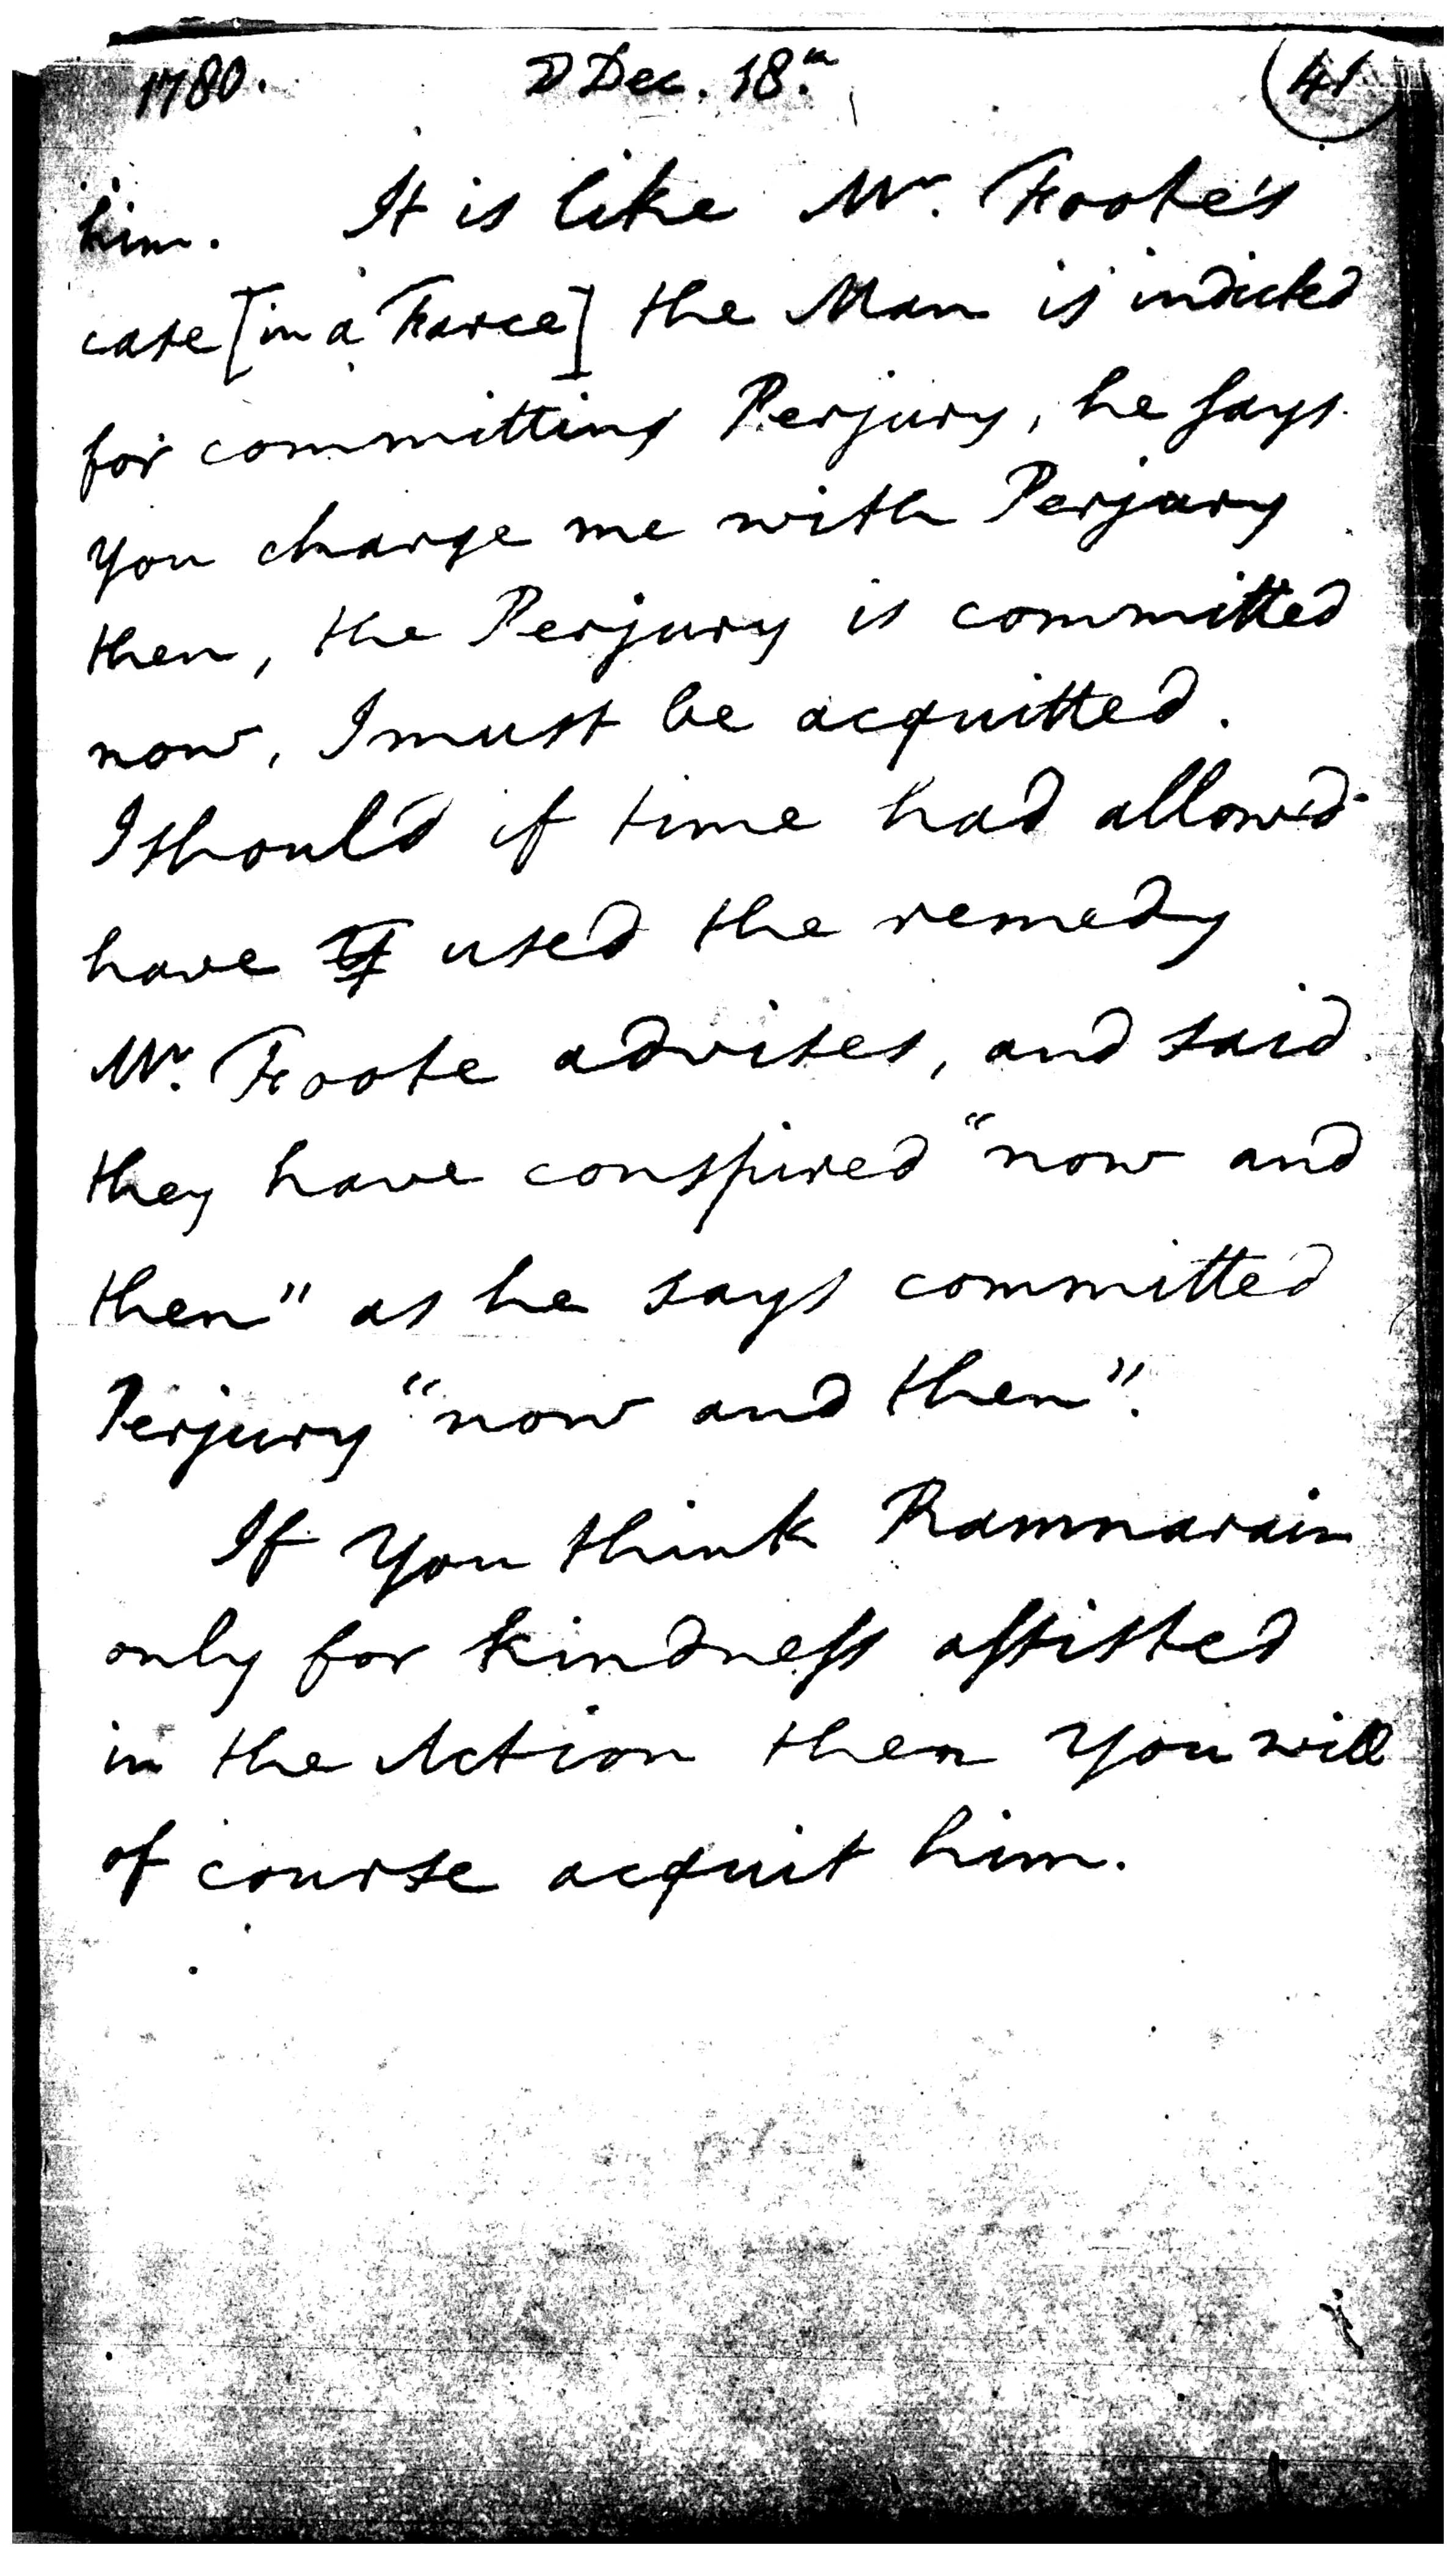 1780. D Dec. 18.th 41
him. It is like Mr. Foote's
case [in a Farce] the Man is indicted
for committing Perjury, he says
you charge me with Perjury
then, the Perjury is committed
now, I must be acquitted.
I should if time had allow'd
have used the remedy
Mr. Foote advises, and said
they have conspired "now and
then" as he says committed
Perjury "now and then".
If you think Ramnarain
only for kindness assisted
in the Action then you will
of course acquit him.